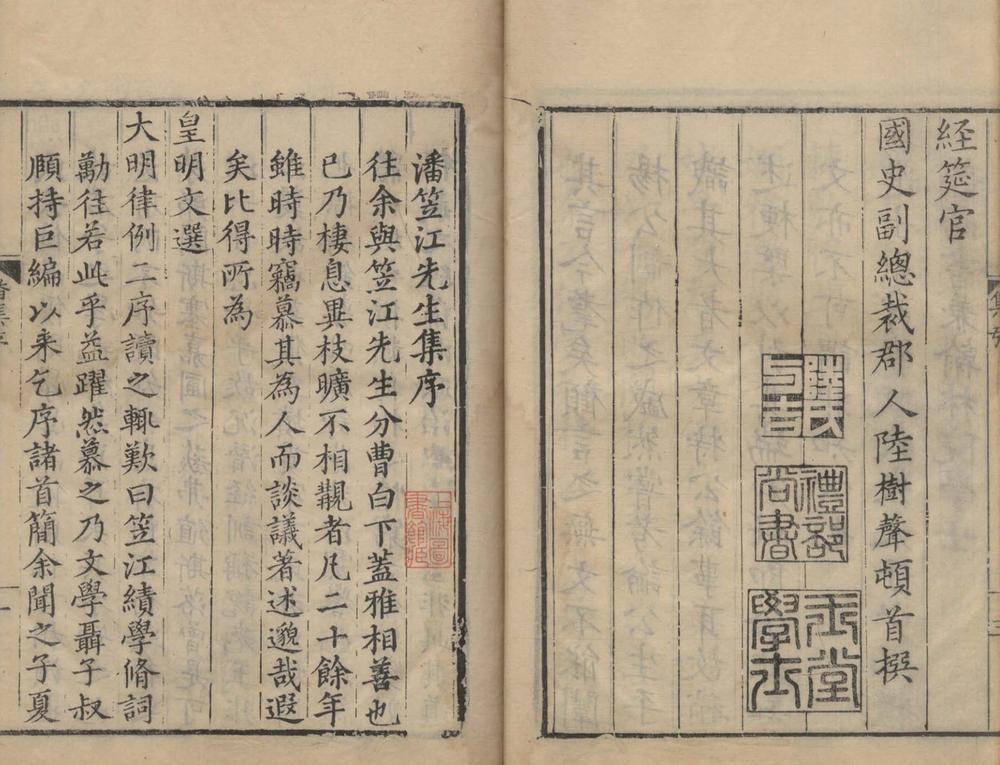 經筵官
國史副總裁郡人陸樹聲頓首撰
禮部
尚書
玉堂
學士
潘笠江先生集序
往余與笠江先生分曹白下蓋雅相善也
已乃棲息異枝曠不相覯者凡二十餘年
雖時時竊慕其為人而談議著述邈哉遐
矣比得所為
皇明文選
大明律例二序讀之輒歎曰笠江績學脩詞
勤往若此乎益躍然慕之乃文學聶子叔
頎持巨編以来乞序諸首簡余聞之子夏